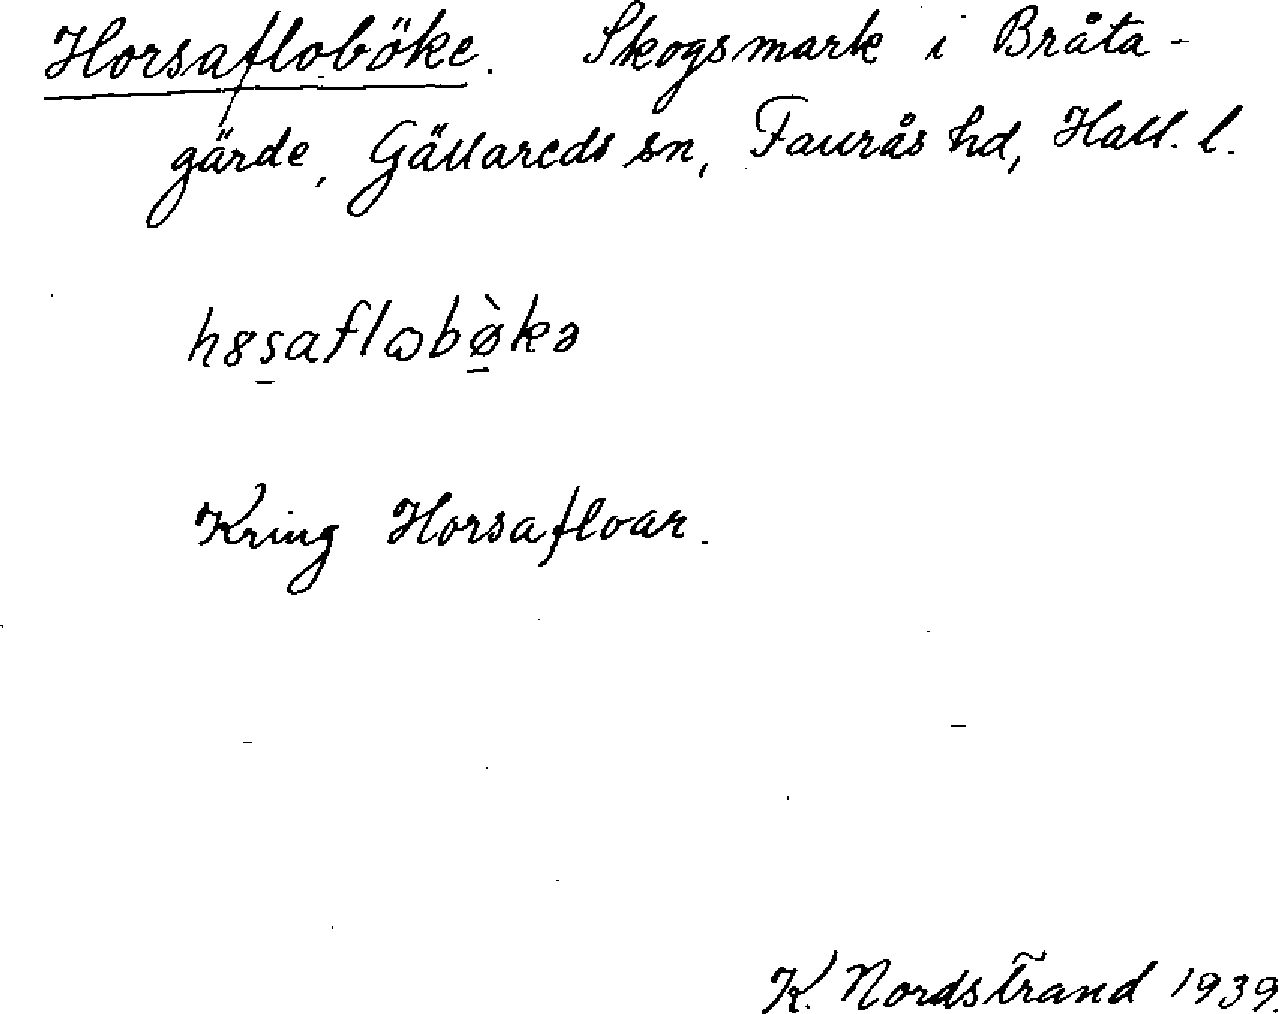 Horsafloböke. Skogsmark i Bråta-
gärde, Gällareds sn, Faurås hd, Hall. l.
h8s̠aflɷbø̠̀kə
Kring Horsafloar.
K. Nordstrand 1939.